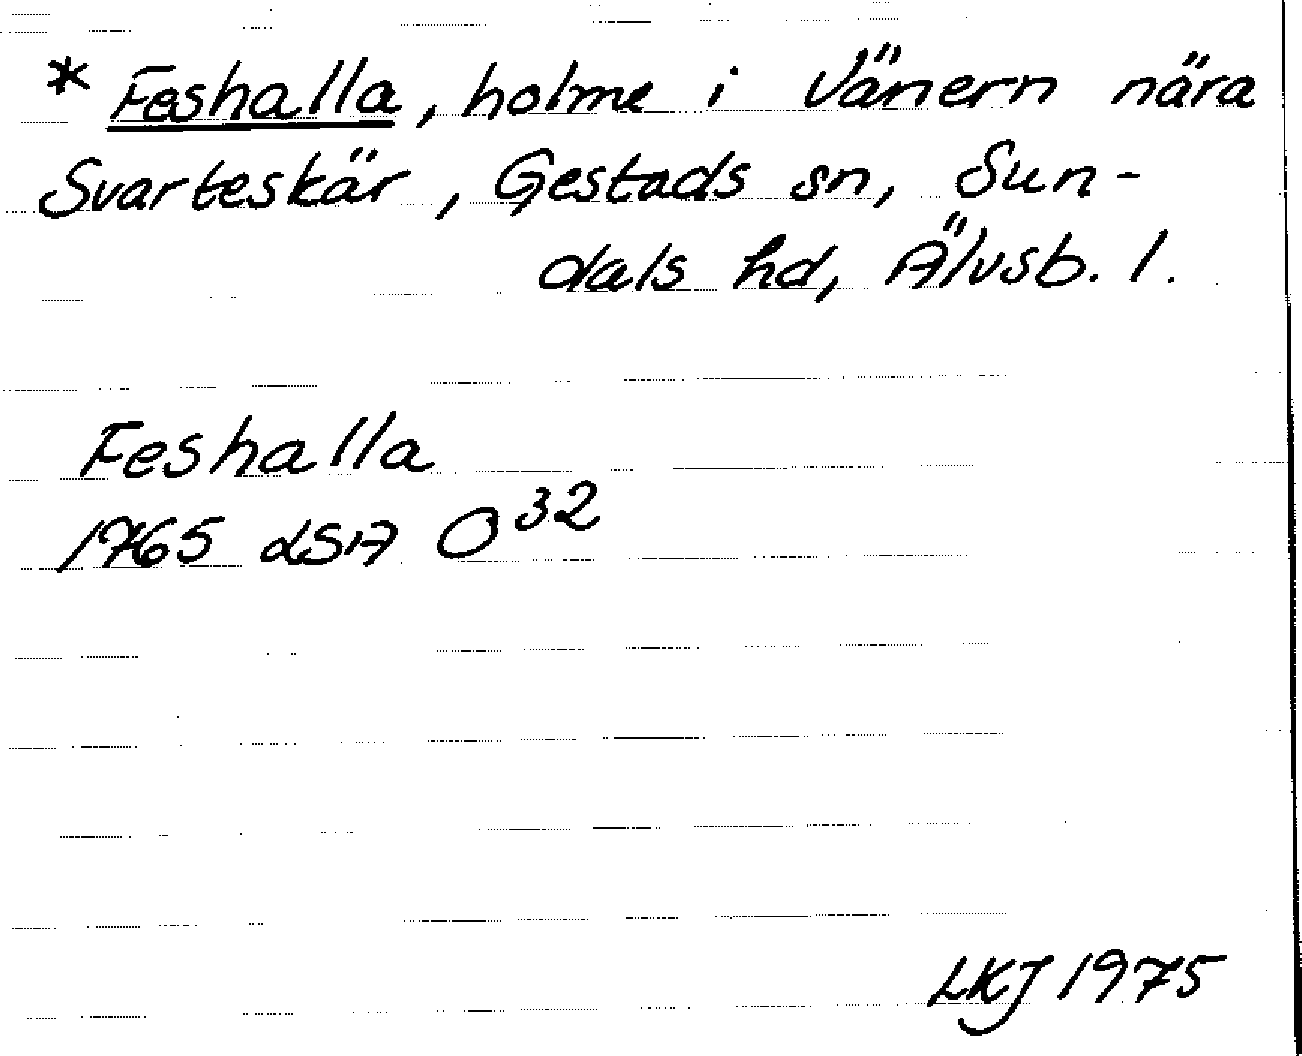 * Feshalla, holme i Vänern nära
Svarteskär, Gestads sn, Sun-
dals hd, Älvsb. l.
Feshalla
1765 LSA O 32
LKJ 1975